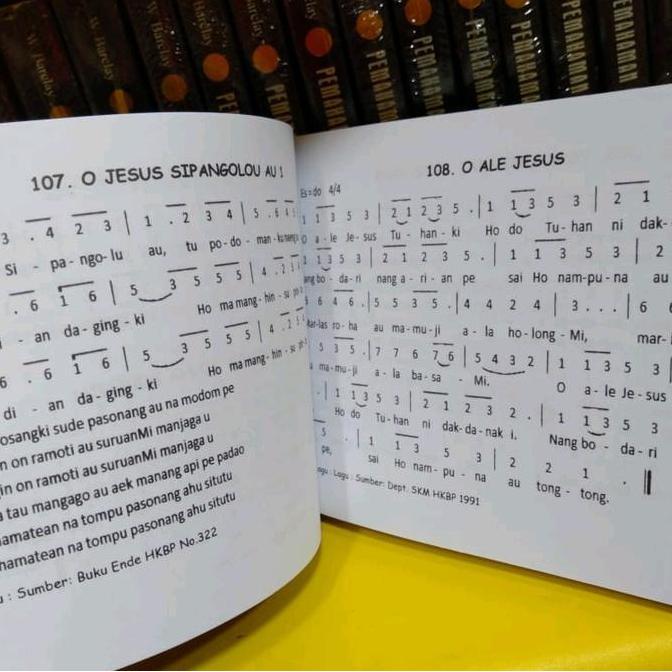 W. Barclay
W. Barclay
W. Barclay
Barclay
Barclay
PEMAHAMAN
PEMAHAMAN
PEMAHAMAN
PEMAHAMAN
PEMAHAMAN
PEMAHAMAN
107. O JESUS SIPANGOLOU AU 1
3 . 4 2 3 | 1 . 2 3 4 | 5 . 6 4 5
Si - pa - ngo - lu au, tu po - do - man - ku
. 6 1 6 | 5 3 5 5 5 | 4 . 2 3 4
i - an da - ging - ki Ho ma mang - hin - su
6 . 6 1 6 | 5 3 5 5 5 | 4 . 2 3 4
di - an da - ging - ki Ho ma mang - hin - su
sude pasonang au na modom pe
on ramoti au suruanMi manjaga u
on ramoti au suruanMi manjaga u
tau mangago au aek manang api pe padao
hamatean na tompu pasonang ahu situtu
hamatean na tompu pasonang ahu situtu
: Sumber: Buku Ende HKBP No.322
108. O ALE JESUS
Es=do 4/4
1 1 3 5 3 | 2 1 2 3 5 . | 1 1 3 5 3 | 2 1
O a - le Je - sus Tu - han - ki Ho do Tu - han ni dak -
1 3 5 3 | 2 1 2 3 5 . | 1 1 3 5 3 | 2
bo - da - ri nang a - ri - an pe sai Ho nam - pu - na au
5 6 4 6 . | 5 5 3 5 . | 4 4 2 4 | 3 . . . | 6
las ro - ha au ma - mu - ji a - la ho - long - Mi, mar -
5 3 5 . | 7 7 6 7 6 | 5 4 3 2 | 1 1 3 5 3
ma - mu - ji a - la ba - sa - Mi. O a - le Je - sus
. | 1 1 3 5 3 | 2 1 2 3 2 . | 1 1 3 5 3
Ho do Tu - han ni dak - da - nak i. Nang bo - da - ri
5 . | 1 1 3 5 3 | 2 2 1 . ||
pe, sai Ho nam - pu - na au tong - tong.
: Lagu : Sumber: Dept. SKM HKBP 1991